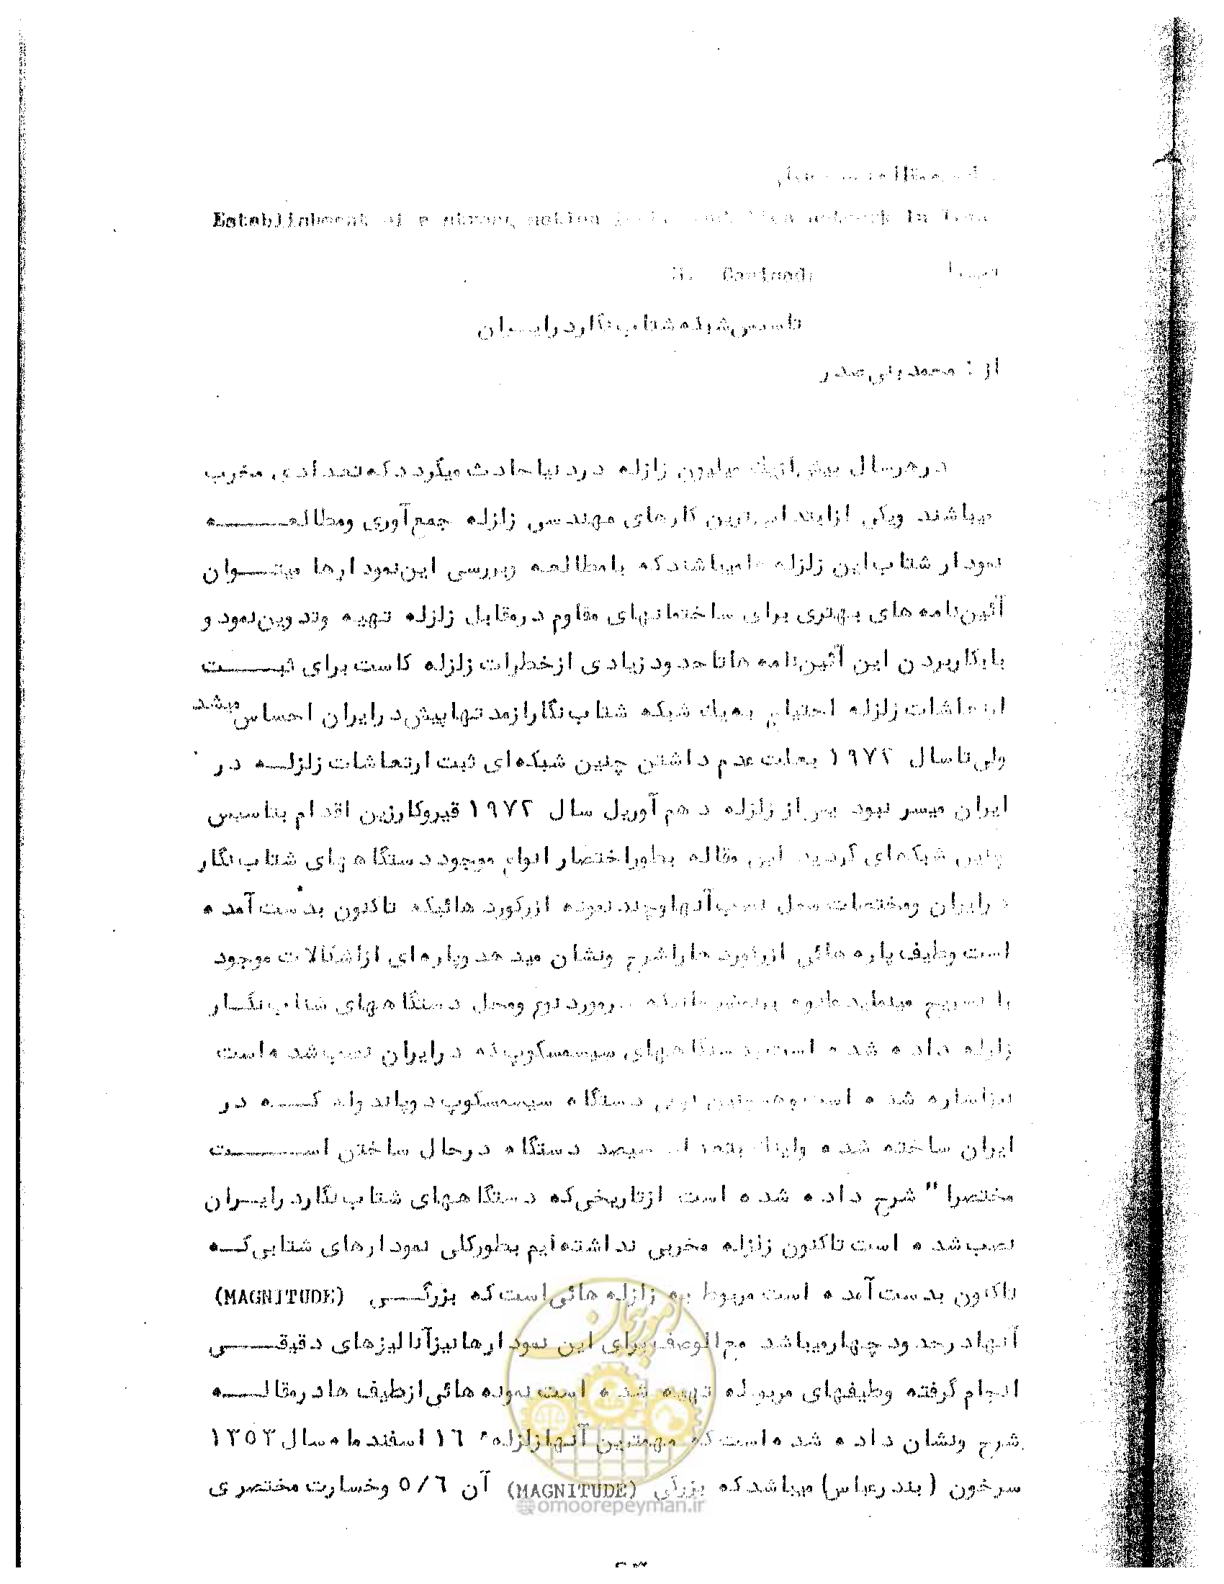 Establishment of a strong motion network in
تاسیس شبکه شتاب نگار در ایـــران
از : محمد بنی صدر
در هر سال بیش از یک میلیون زلزله در دنیا حادث میگردد که تعدادی مخرب
میباشند ویکی از ابتدائی ترین کارهای مهندسی زلزله جمع آوری ومطالعـــــه
نمودار شتاب این زلزله ها میباشد که با مطالعه وبررسی این نمودارها میتـــوان
آئین نامه های بهتری برای ساختمانهای مقاوم در مقابل زلزله تهیه وتدوین نمود و
با بکار بردن این آئین نامه ها تا حدود زیادی از خطرات زلزله کاست برای ثبـــــت
ارتعاشات زلزله احتیاج به یک شبکه شتاب نگار از مدتها پیش در ایران احساس میشد
ولی تا سال ۱۹۷۲ بعلت عدم داشتن چنین شبکه ای ثبت ارتعاشات زلزلـــه در
ایران میسر نبود پس از زلزله دهم آوریل سال ۱۹۷۲ قیروکارزین اقدام بتاسیس
چنین شبکه ای گردید این مقاله بطور اختصار انواع موجود دستگاههای شتاب نگار
در ایران ومختصات محل نصب آنها وچند نمونه از رکورد هائیکه تاکنون بدست آمده
است وطیف پاره هائی از رکورد ها را شرح ونشان میدهد وپاره ای از اشکالات موجود
را تشریح مینماید علاوه در مورد نوع ومحل دستگاههای شتاب نگـــار
زلزله داده شده است بدستگاههای سیسمسکوپ که در ایران نصب شده است
نیز اشاره شده است وهمچنین نوعی دستگاه سیسمسکوپ دوپاندوله کـــــه در
ایران ساخته شده واینک بتعداد سیصد دستگاه در حال ساختن اســــــت
مختصرا" شرح داده شده است از تاریخی که دستگاههای شتاب نگار در ایـــران
نصب شده است تاکنون زلزله مخربی نداشته ایم بطور کلی نمودارهای شتابی کـــه
تاکنون بدست آمده است مربوط به زلزله هائی است که بزرگـــی (MAGNITUDE)
آنها در حدود چهار میباشد مع الوصف برای این نمودارها نیز آنالیزهای دقیقـــی
انجام گرفته وطیفهای مربوطه تهیه شده است نمونه هائی از طیف ها در مقالـــه
شرح ونشان داده شده است که مهمترین آنها زلزله ۱۶ اسفند ماه سال ۱۳۵۳
سرخون (بندرعباس) میباشد که بزرگی (MAGNITUDE) آن ۵/۶ وخسارت مختصری
امور پیمان
omoorepeyman.ir